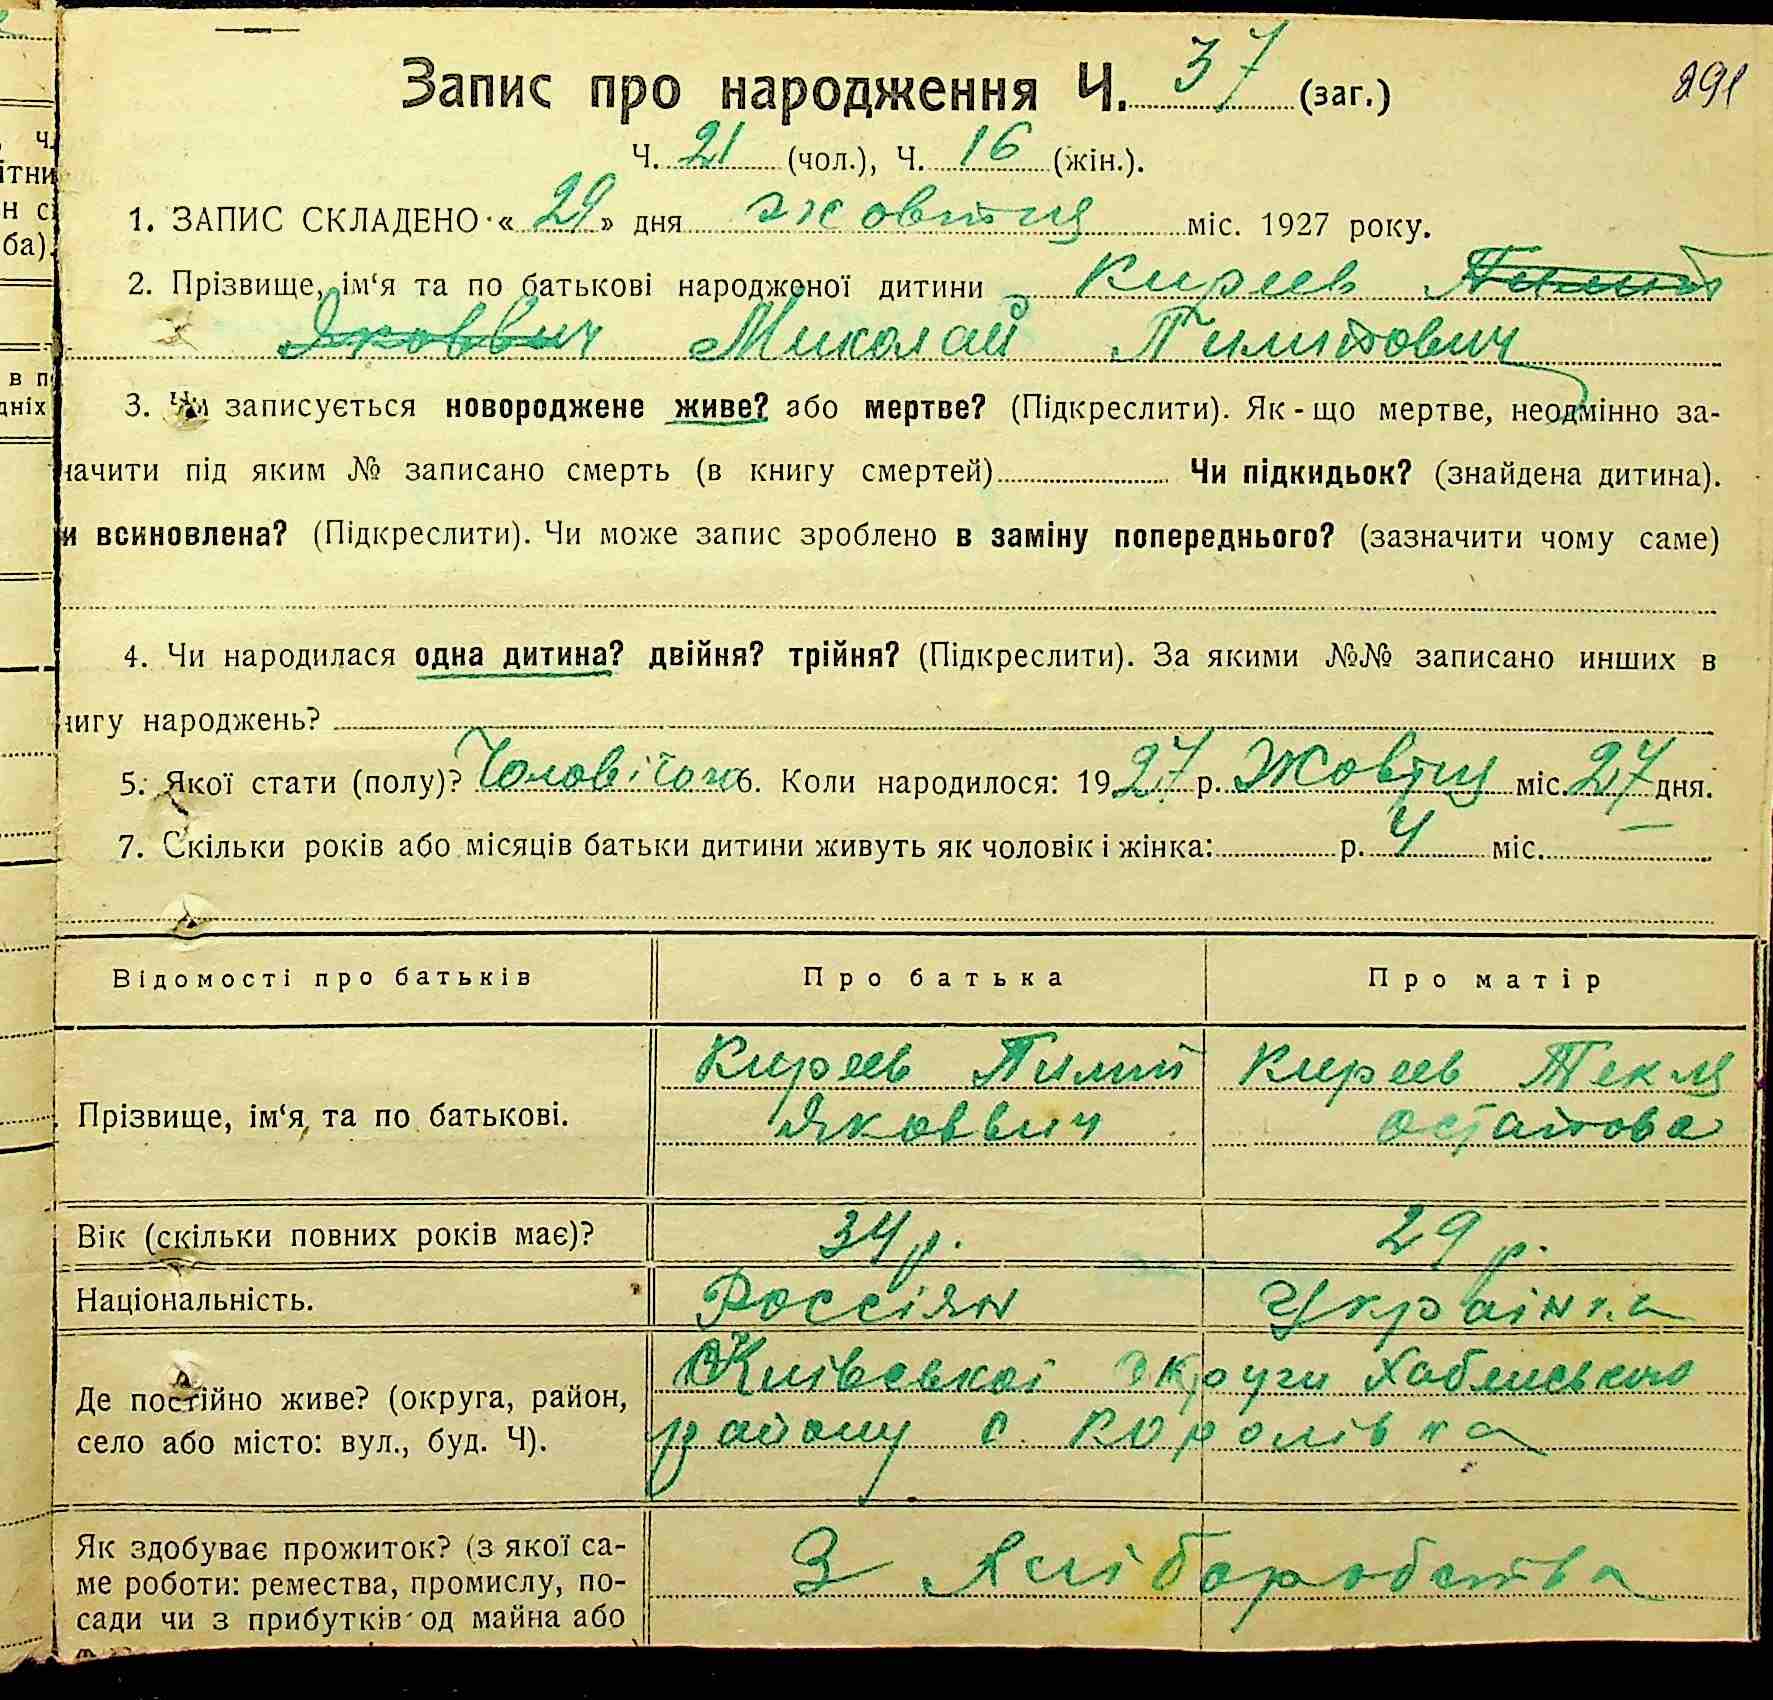 Запис про народження Ч. 37 (заг.)
291
Ч. 21 (чол.), Ч. 16 (жін.).
1. ЗАПИС СКЛАДЕНО «29» дня жовтця міс. 1927 року.
2. Прізвище, ім‘я та по батькові народженої дитини Киреев Пилип
Яковвич Миколай Пилипович
3. Чи записується новороджене живе? або мертве? (Підкреслити). Як-що мертве, неодмінно за-
начити під яким № записано смерть (в книгу смертей) Чи підкидьок? (знайдена дитина).
и всиновлена? (Підкреслити). Чи може запис зроблено в заміну попереднього? (зазначити чому саме)
4. Чи народилася одна дитина? двійня? трійня? (Підкреслити). За якими №№ записано инших в
нигу народжень?
5. Якої стати (полу)? Чоловічого 6. Коли народилося: 1927 р. Жовтця міс. 27 дня.
7. Скільки років або місяців батьки дитини живуть як чоловік і жінка: р. 4 міс.
Відомості про батьків Про батька Про матір
Прізвище, ім‘я та по батькові.
Киреев Пилип Киреев Текля
Яковвич остапова
Вік (скільки повних років має)? 34 р. 29 р.
Національність. Россіян Українка
Де постійно живе? (округа, район,
село або місто: вул., буд. Ч).
Київської округи Хабенського
району с Королівка
Як здобуває прожиток? (з якої са-
ме роботи: ремества, промислу, по-
сади чи з прибутків од майна або
З Хліборобства